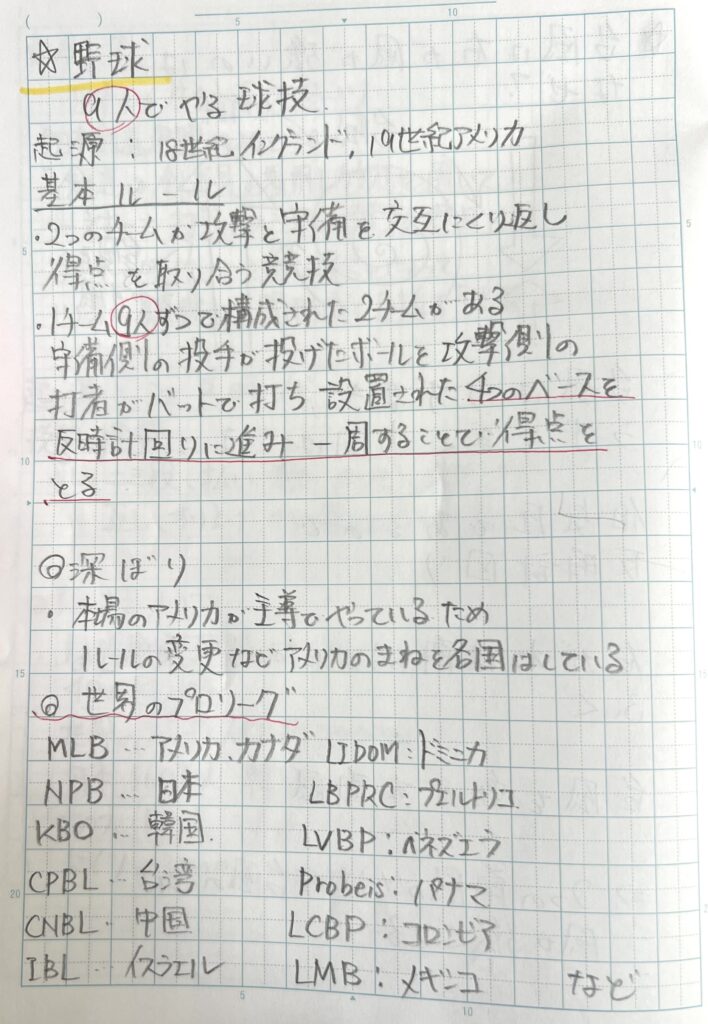 ☆野球
9人でやる球技.
起源：18世紀イングランド,19世紀アメリカ
基本ルール
・2つのチームが攻撃と守備を交互にくり返し
得点を取り合う競技
・1チーム9人ずつで構成された2チームがある
守備側の投手が投げたボールを攻撃側の
打者がバットで打ち設置された4つのベースを
反時計回りに進み一周することで得点を
とる
◎深ぼり
・本場のアメリカが主導でやっているため
ルールの変更などアメリカのまねを各国はしている
◎世界のプロリーグ
MLB…アメリカ、カナダ LIDOM：ドミニカ
NPB…日本 LBPRC：プエルトリコ
KBO…韓国. LVBP：ベネズエラ
CPBL…台湾 Probeis：パナマ
CNBL…中国 LCBP：コロンビア
IBL…イスラエル LMB：メキシコ など
5
10
5
10
15
20
5
10
5